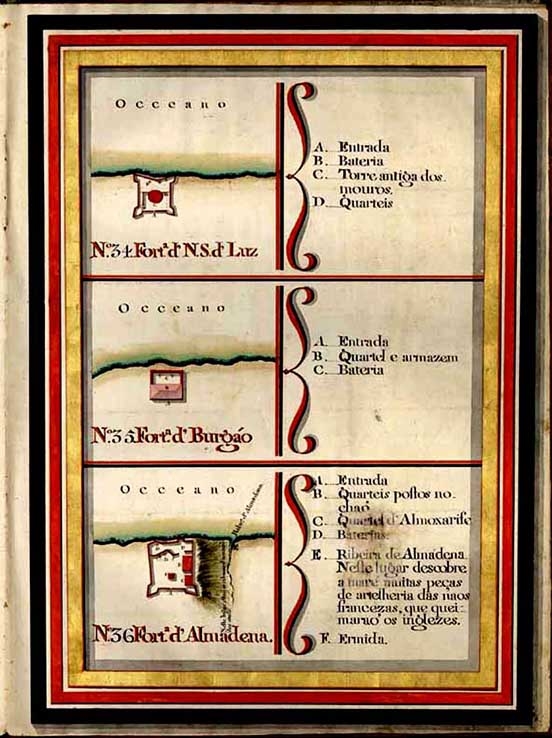 Occeano
A. Entrada
B. Bateria
C. Torre antiga dos
mouros.
D. Quarteis
N.º 34 Fort.ª d' N. S. d' Luz
Occeano
A. Entrada
B. Quartel e armazem
C. Bateria
N.º 35 Fort.ª d' Burgáo
Occeano
A. Entrada
B. Quarteis postos no
chaõ
C. Quartel d' Almoxarife
D. Baterias.
E. Ribeira de Almádena.
Neste lugar descobre
a maré muitas peças
de artelheria das naos
francezas, que quei-
maraõ os inglezes.
F. Ermida.
N.º 36 Fort.ª d' Almadena.